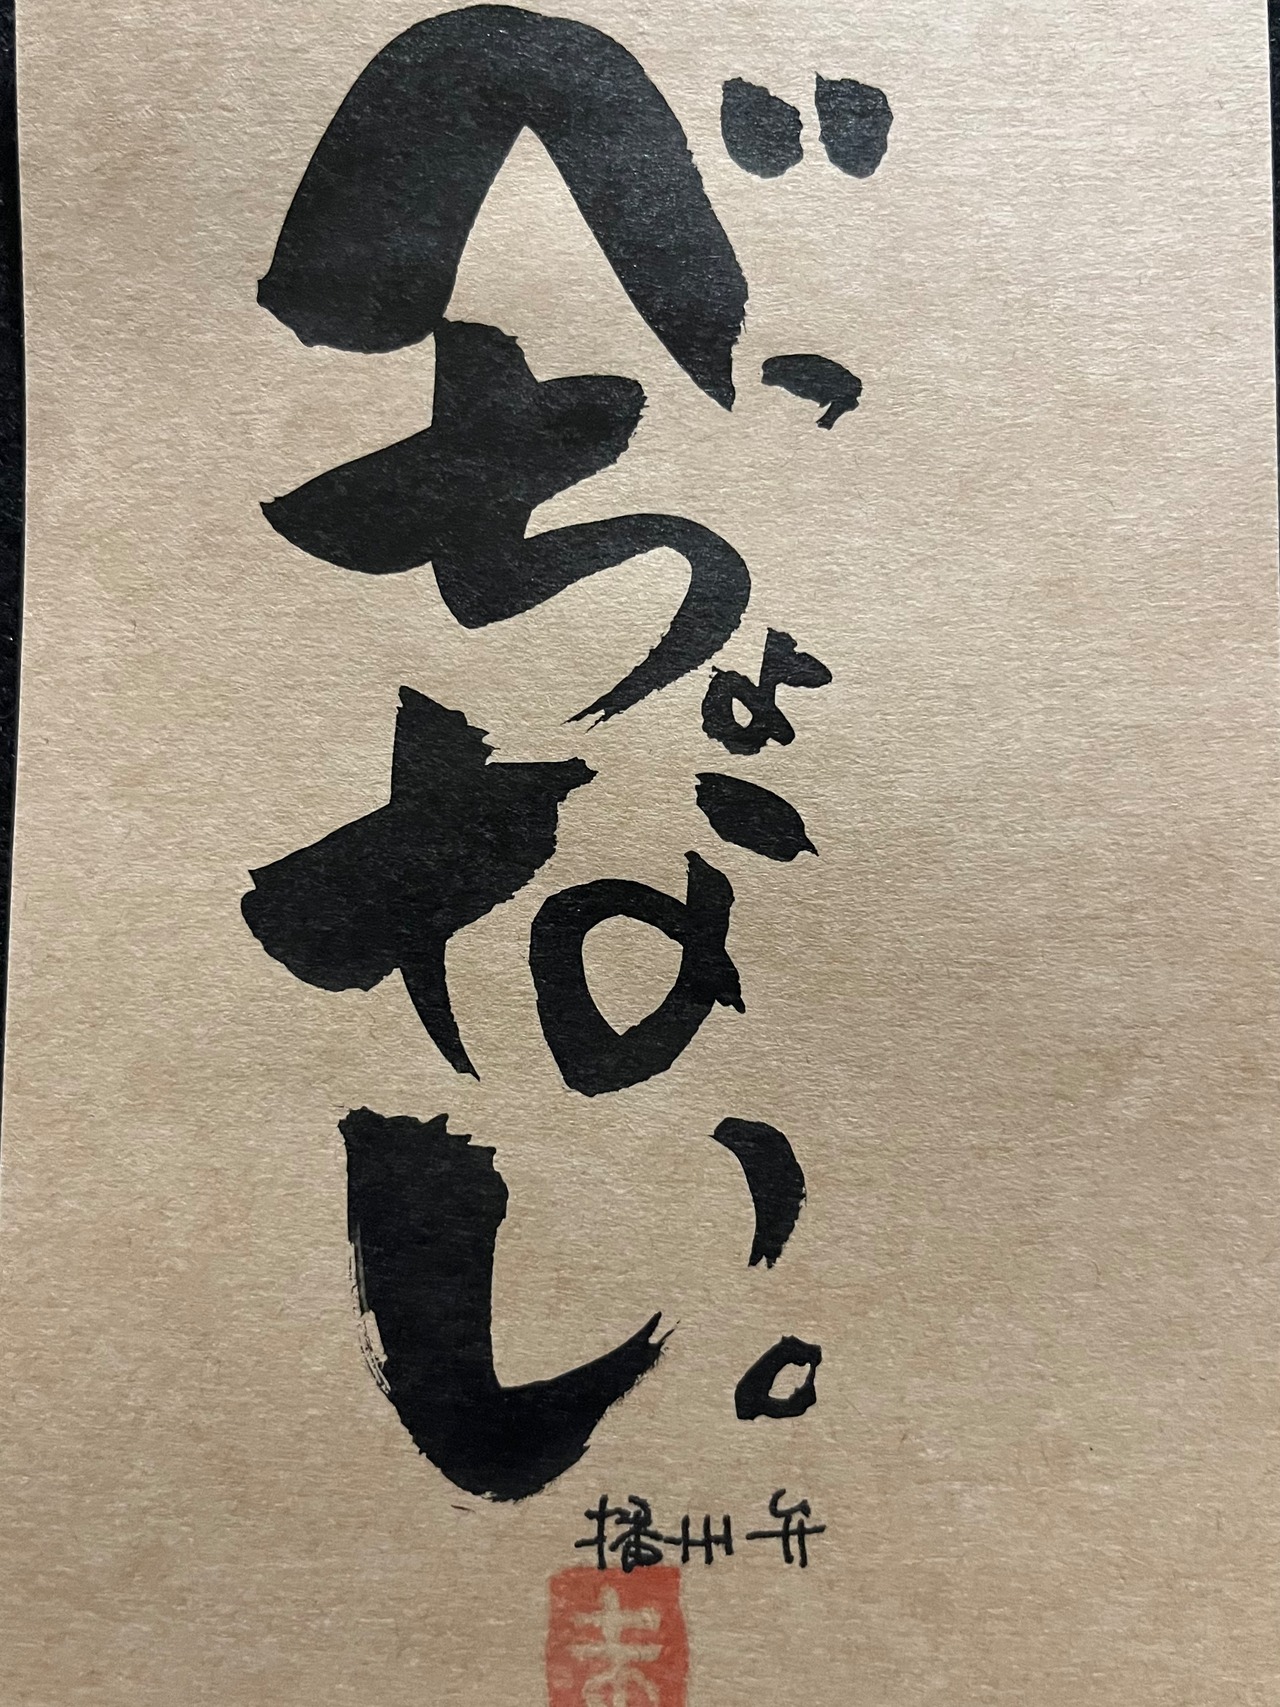 べっちょない。
播州弁